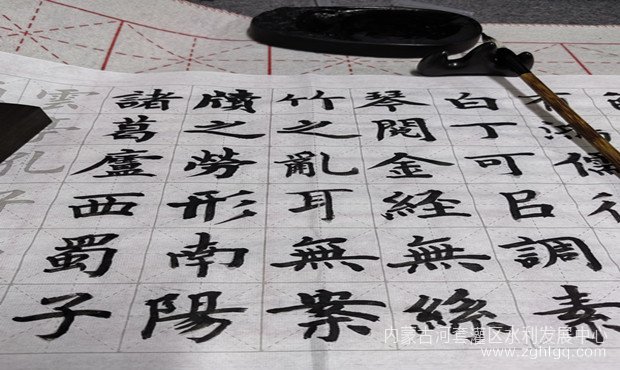 有鴻儒往
白丁可㠯調素
琴閱金經無絲
竹之亂耳無案
牘之勞形南陽
諸葛廬西蜀子
雲亭孔子
内蒙古河套灌区水利发展中心
www.zghtgq.com